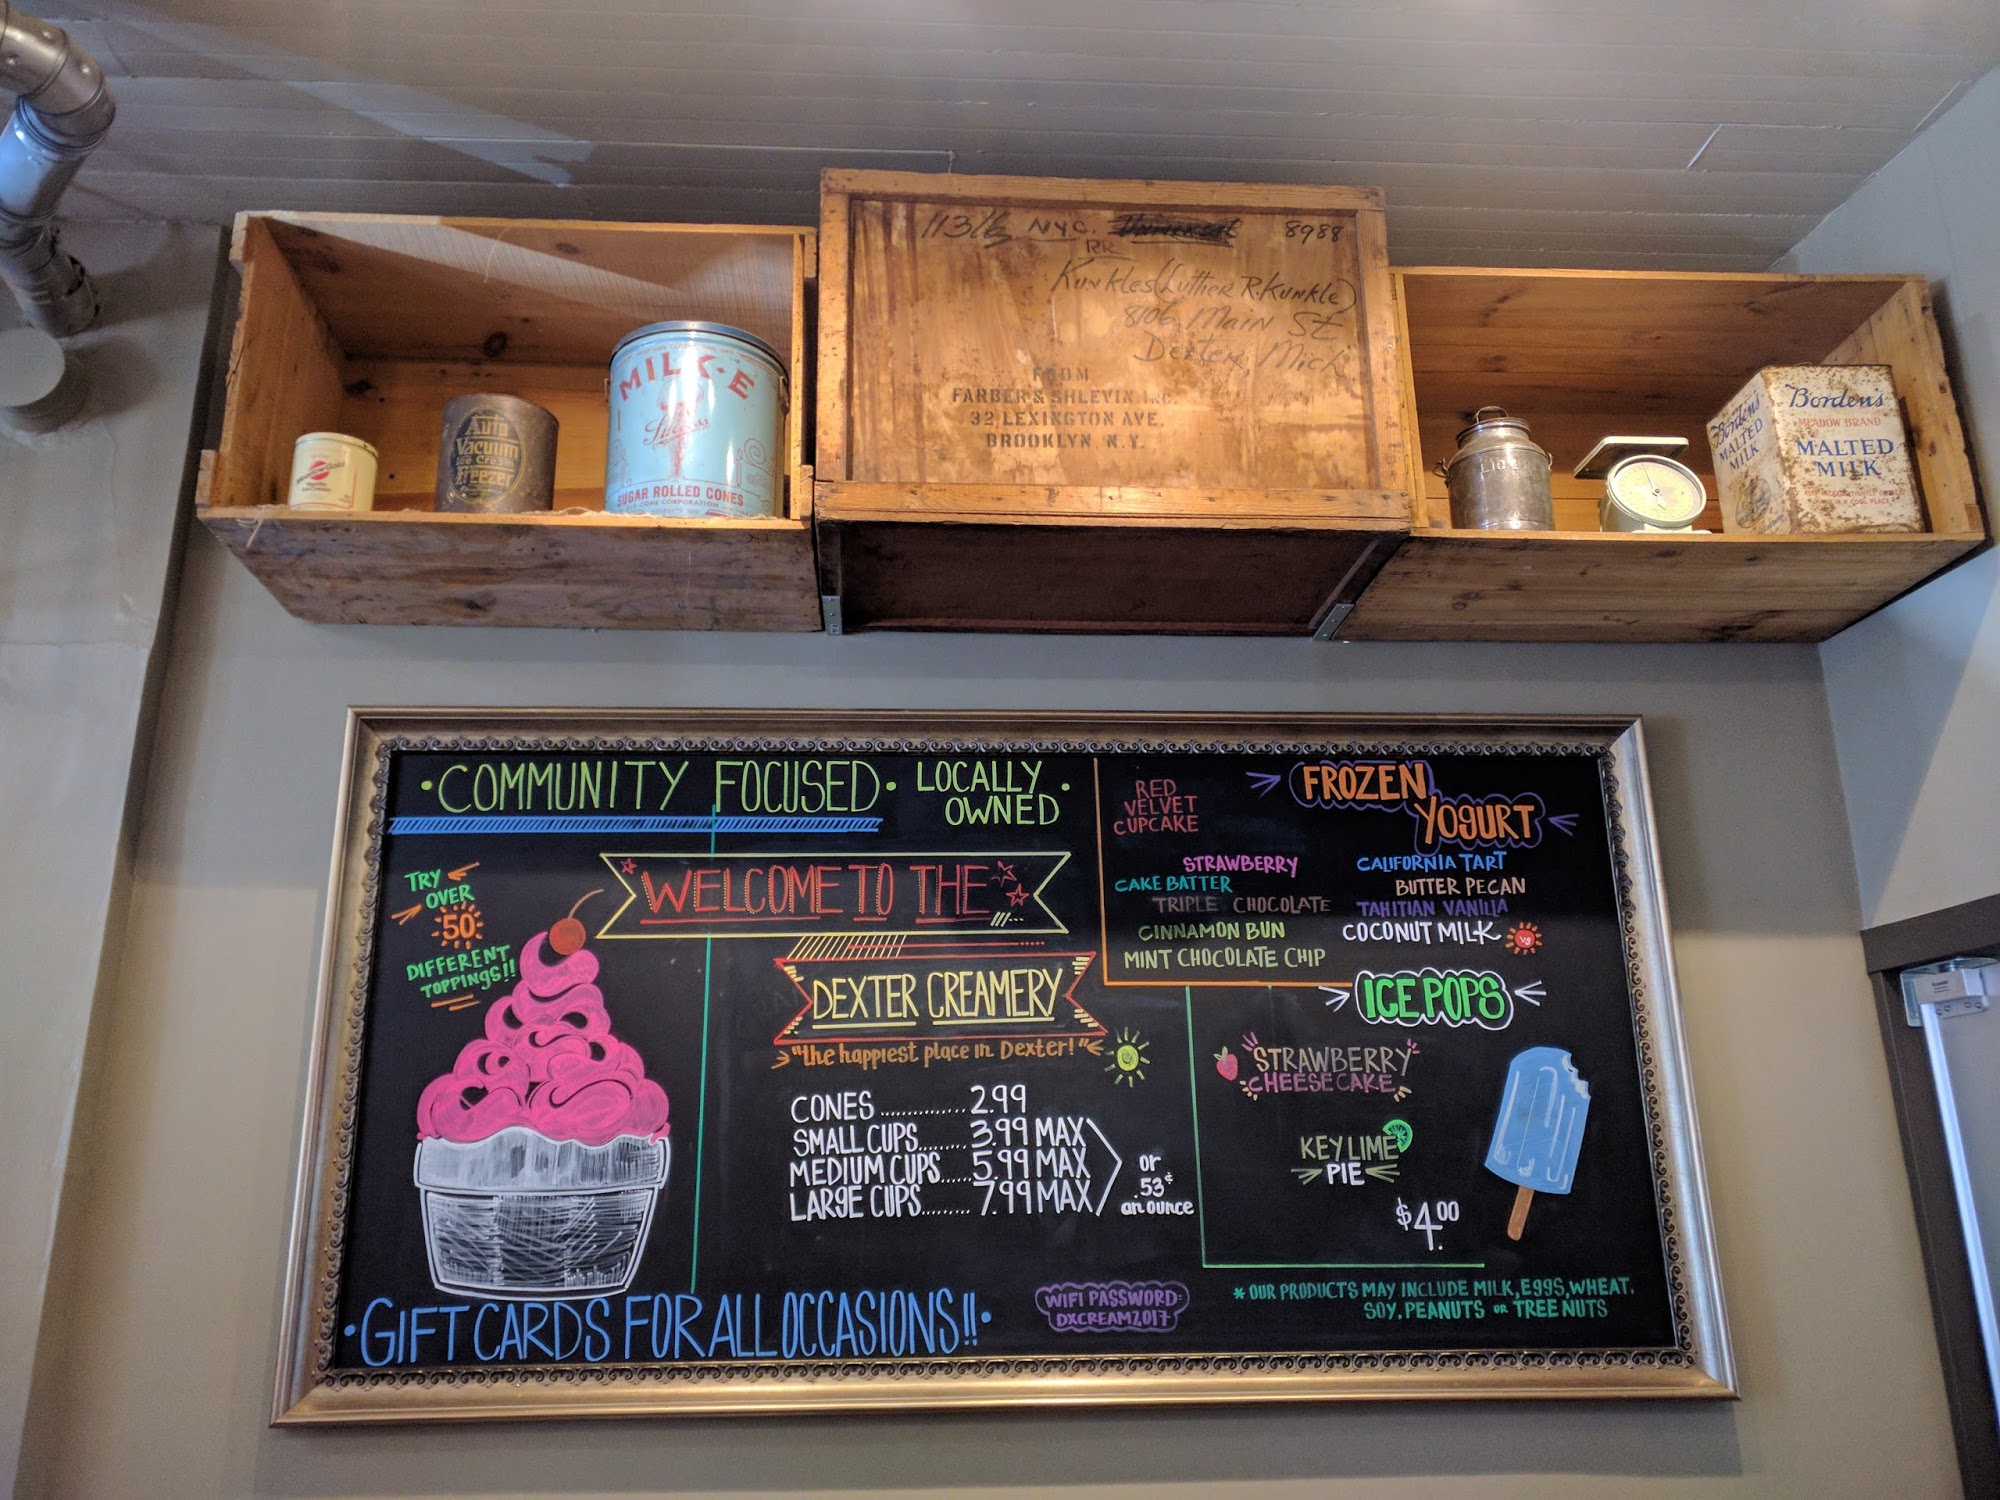 113 lb NYC. 8988
RR
Kunkles (Luther R. Kunkle)
8106 Main St
Dexter, Mich
FROM
FARBER & SHLEVIN, INC.
32 LEXINGTON AVE.
BROOKLYN, N.Y.
Meadow Gold
Auto
Vacuum
Ice Cream
Freezer
MILK-E
SUGAR ROLLED CONES
Borden's
MALTED
MILK
Borden's
MEADOW BRAND
MALTED
MILK
• COMMUNITY FOCUSED •
LOCALLY
OWNED •
TRY
OVER
50
DIFFERENT
TOPPINGS!!
WELCOME TO THE
DEXTER CREAMERY
"the happiest place in Dexter!"
CONES .............. 2.99
SMALL CUPS........ 3.99 MAX
MEDIUM CUPS...... 5.99 MAX
LARGE CUPS......... 7.99 MAX
or
.53¢
an ounce
• GIFT CARDS FOR ALL OCCASIONS!! •
WIFI PASSWORD:
DXCREAM2017
FROZEN
YOGURT
RED
VELVET
CUPCAKE
STRAWBERRY
CAKE BATTER
TRIPLE CHOCOLATE
CINNAMON BUN
MINT CHOCOLATE CHIP
CALIFORNIA TART
BUTTER PECAN
TAHITIAN VANILLA
COCONUT MILK
ICE POPS
STRAWBERRY
CHEESECAKE
KEY LIME
PIE
$4.00
* OUR PRODUCTS MAY INCLUDE MILK, EGGS, WHEAT,
SOY, PEANUTS or TREE NUTS